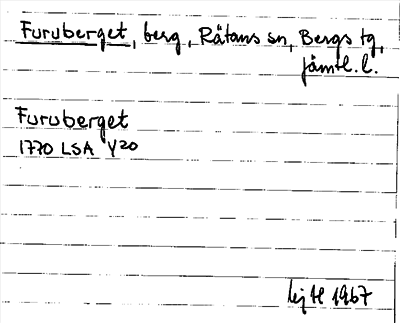 Furuberget, berg, Rätans sn, Bergs tg,
Jämtl. l.
Furuberget
1770 LSA Y20
Ej H 1967